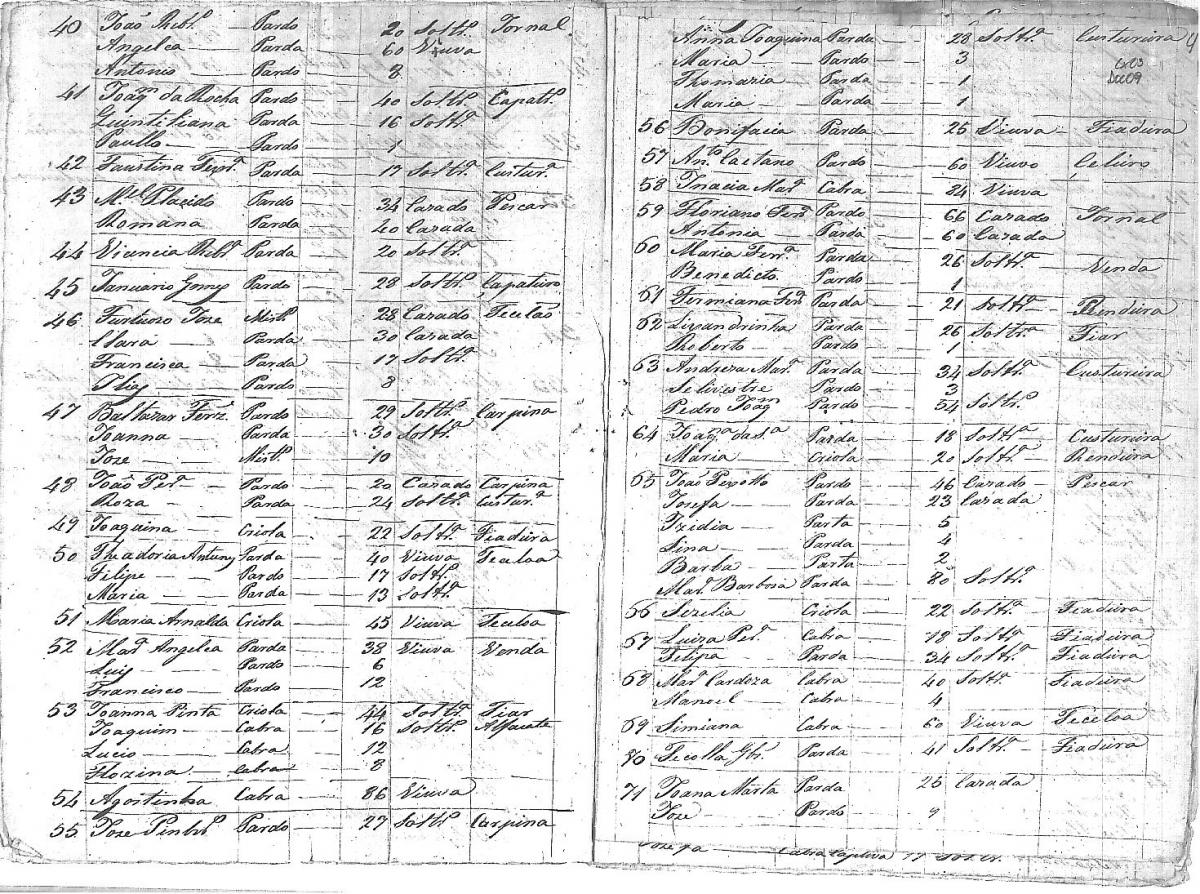 40 João Rib.ro Pardo 20 Soltr.o Jornal
Angelica Parda 60 Viuva
Antonio Pardo 8
41 Joaq.m da Rocha Pardo 40 Soltr.o Çapatr.o
Quintiliana Parda 16 Soltr.a
Paullo Pardo 1
42 Faustina Parda 17 Soltr.a Custur.a
43 M.el Placido Pardo 34 Cazado Pescar
Romana Parda 40 Cazada
44 Vicencia Rib.ra Parda 20 Soltr.a
45 Januario Gomes Pardo 28 Soltr.o Çapateiro
46 Joze Mist.o 28 Cazado Tecelaõ
Clara Parda 30 Cazada
Francisca Parda 17 Soltr.a
Pardo 8
47 Baltazar Ferr.z Pardo 29 Soltr.o Carpina
Joanna Parda 30 Soltr.a
Joze Mist.o 10
48 João Per.a Pardo 20 Cazado Carpina
Roza Parda 24 Soltr.a Custur.a
49 Joaquina Criola 22 Soltr.a Fiadeira
50 Theadoria Antunes Parda 40 Viuva Teceloa
Filipe Pardo 17 Soltr.o
Maria Parda 13 Soltr.a
51 Maria Arnalda Criola 45 Viuva Teceloa
52 Mar.a Angelica Parda 38 Viuva Venda
Luis Pardo 6
Francisco Pardo 12
53 Joanna Pinta Criola 44 Soltr.a Fiar
Joaquim Cabra 16 Soltr.o Alfaiate
Lucio Cabra 12
Florzina Cabra 8
54 Agostinha Cabra 86 Viuva
55 Joze Pinhr.o Pardo 27 Soltr.o Carpina
Anna Joaquina Parda 28 Soltr.a Custureira
Maria Pardo 3
Thomazia Parda 1
Maria Parda 1
Cx03
Doc09
56 Bonifacia Parda 25 Viuva Fiadeira
57 Ant.o Caetano Pardo 60 Viuvo
58 Inacia Mar.a Cabra 84 Viuva
59 Floriano Ferr.a Pardo 66 Cazado Jornal
Antonia Parda 60 Cazada
60 Maria Ferr.a Parda 26 Soltr.a Venda
Benedicto Pardo 1
61 Fermiana Ferr.a Parda 21 Soltr.a Rendeira
62 Lixandrinha Parda 26 Soltr.a Fiar
Roberto Pardo 1
63 Andreza Mar.a Parda 34 Soltr.a Custureira
Selivestre Pardo 3
Pedro Joaq.m Pardo 54 Soltr.o
64 Joaq.na da S.a Parda 18 Soltr.a Custureira
Maria Criola 20 Soltr.a Rendeira
65 João Peixotto Pardo 46 Cazado Pescar
Josefa Parda 23 Cazada
Izidia Parta 5
Sina Parda 4
Barba Parta 2
Mar.a Barbosa Parda 80 Soltr.a
66 Sezelia Criola 22 Soltr.a Fiadeira
67 Luiza Per.a Cabra 18 Soltr.a Fiadeira
Felipa Parda 34 Soltr.a Fiadeira
68 Mar.a Cardoza Cabra 40 Soltr.a Fiadeira
Manoel Cabra 4
69 Simiana Cabra 60 Viuva Teceloa
70 Parda 41 Soltr.a Fiadeira
71 Joana Marta Parda 25 Cazada
Joze Pardo 9
Cabra Captiva